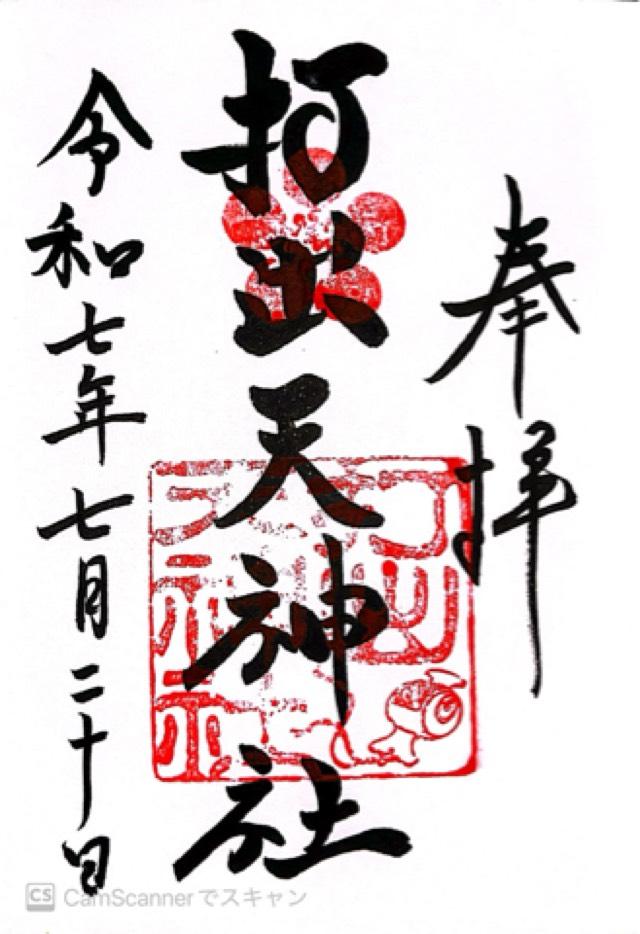 奉拝
打出天神社
令和七年七月二十日
CS CamScannerでスキャン